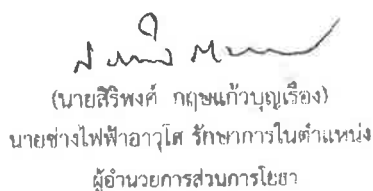 (นายสิริพงศ์ กฤษแก้วบุญเรือง)
นายช่างไฟฟ้าอาวุโส รักษาการในตำแหน่ง
ผู้อำนวยการส่วนการโยธา